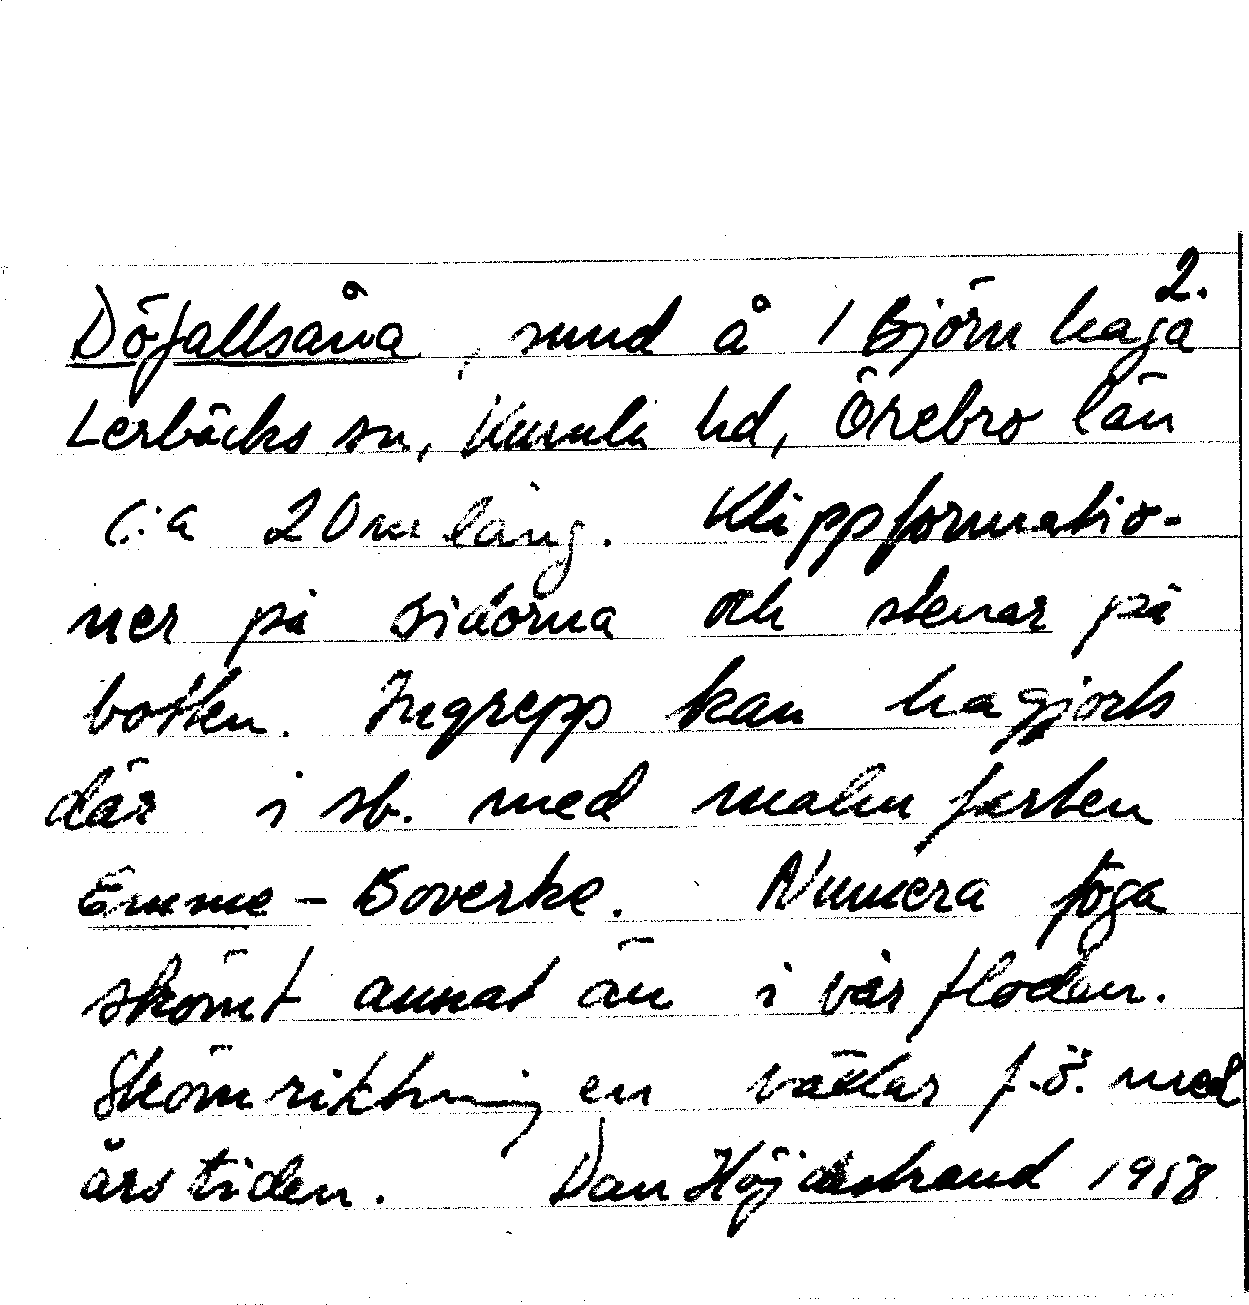 2.
Döfallsåna, sund å / Björnhaga
Lerbäcks sn, Kumla hd, Örebro län
c:a 20 m lång. Klippformatio-
ner på sidorna och stenar på
botten. Ingrepp kan ha gjorts
där i sb. med malmfarten
Emme - Boverke. Numera föga
strömt annat än i vårfloden.
Strömriktningen växlar f.ö. med
årstiden. Dan Höjdestrand 1958